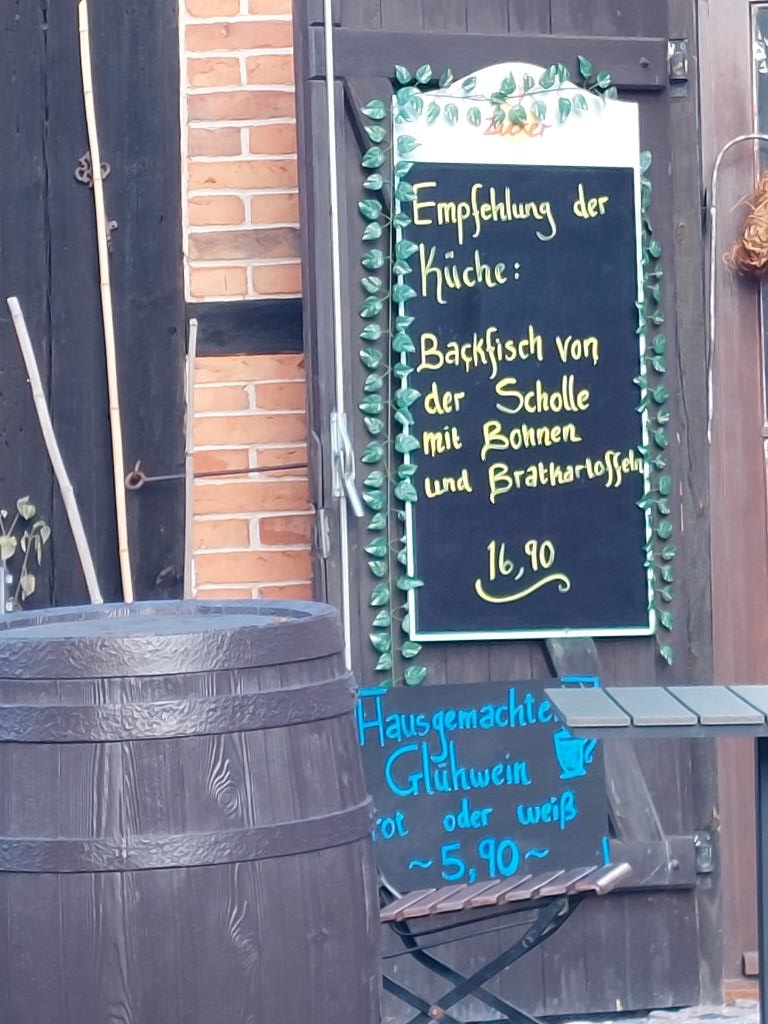 Zucker
Empfehlung der
Küche:
Backfisch von
der Scholle
mit Bohnen
und Bratkartoffeln
16,90
Hausgemachter
Glühwein
rot oder weiß
~5,90~